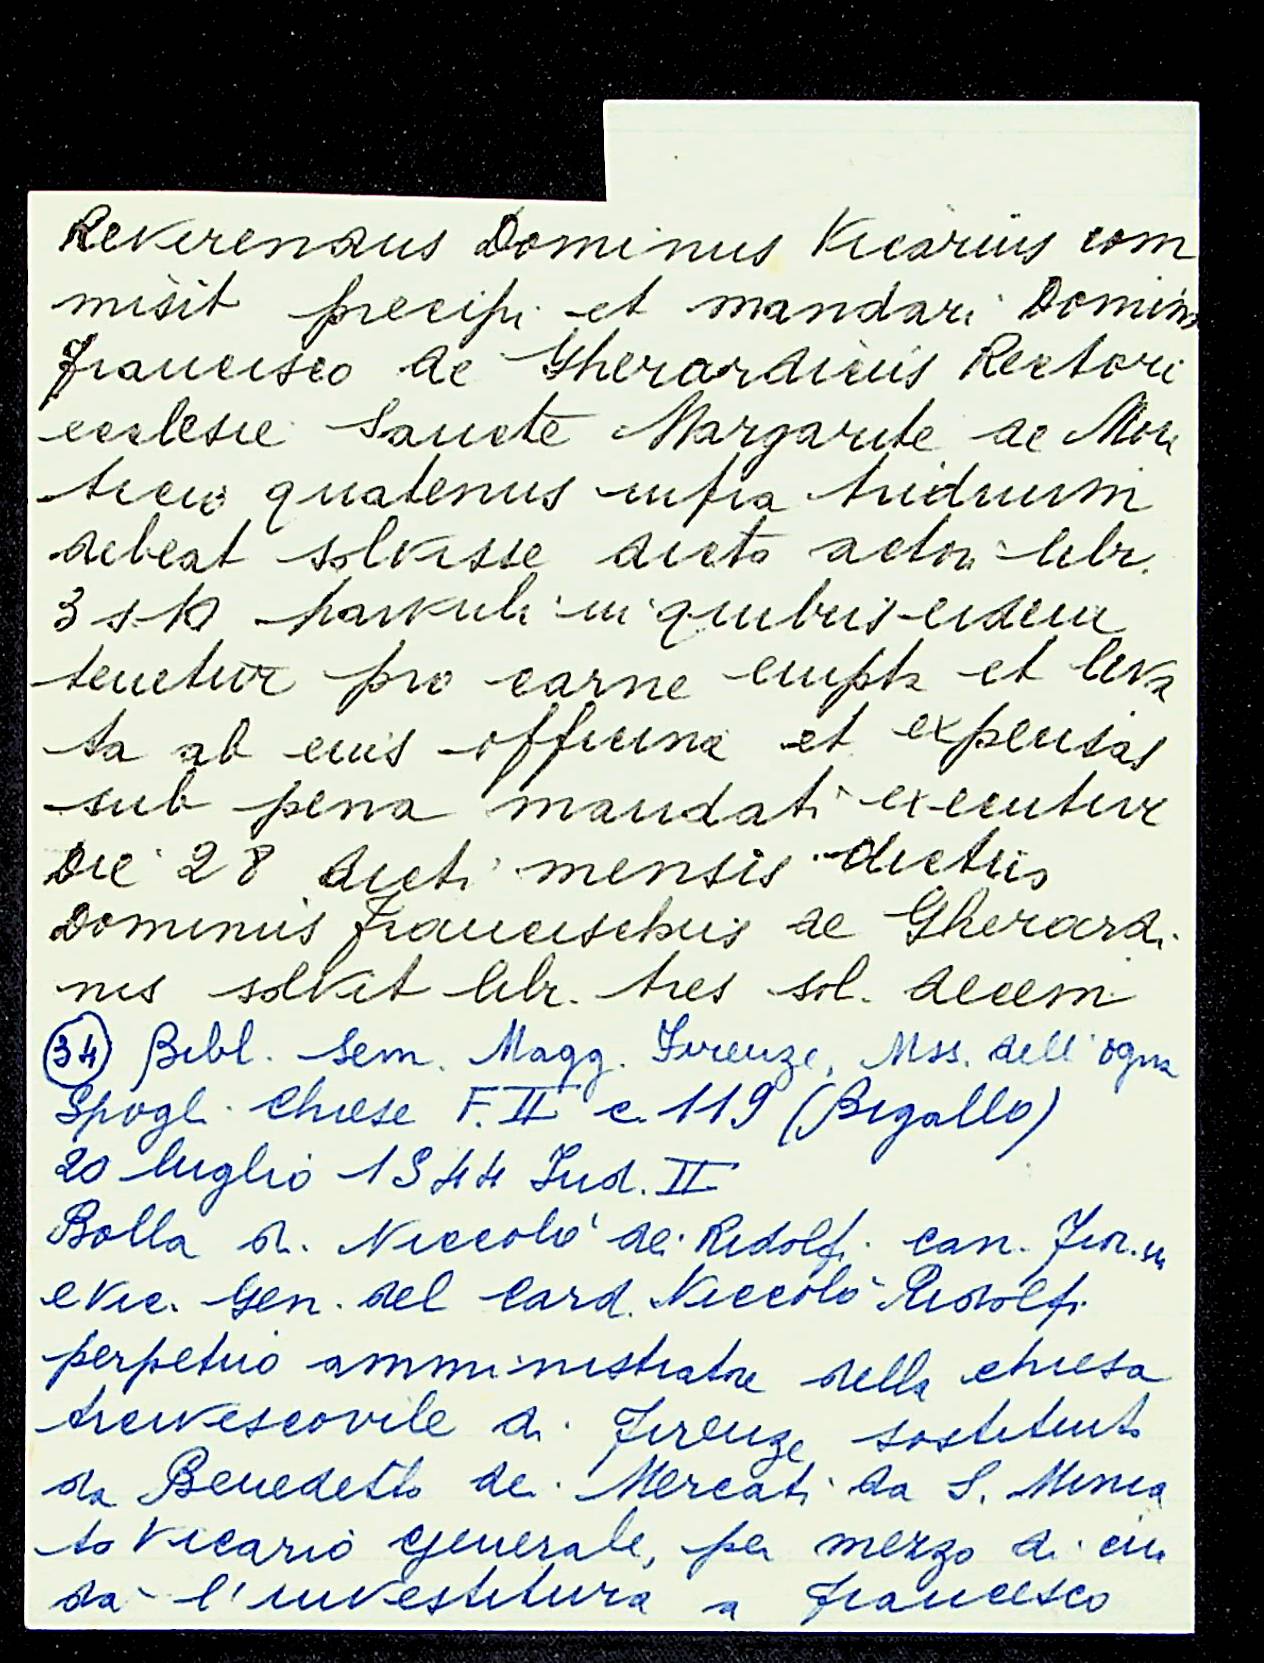 Reverendus Dominus Vicarius com
misit precipi et mandari Domino
Francisco de Gherardinis Rectori
ecclesie Sancte Margarite de Mon
ticis quatenus infra triduum
debeat solvisse dicto actori libr.
3 s. 10 in quibus eidem
tenetur pro carne empta et leva
ta ab eius officina et expensas
sub pena mandati executivi
Die 28 dicti mensis dictus
Dominus Francischus de Gherardi
nis solvit libr. tres sol. decem
(34) Bibl. Sem. Magg. Firenze, Mss. dell'ogna
Spogl. Chiese F. II c. 119 (Bigallo)
20 luglio 1544 Ind. II
Bolla di Niccolò dei Ridolfi can. Fior.
e Vic. Gen. del Card. Niccolò Ridolfi
perpetuo amministratore della chiesa
arcivescovile di Firenze sostituito
da Benedetto dei Mercati da S. Minia
to Vicario generale, per mezzo di cui
dà l'investitura a Francesco